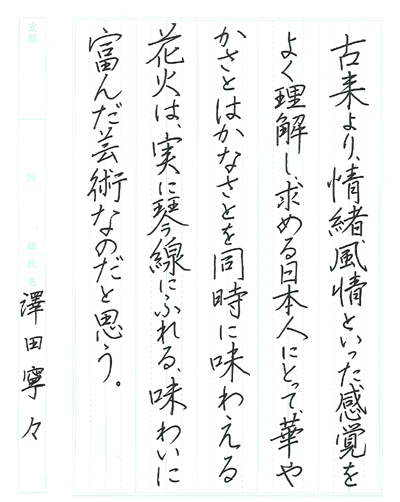 古来より、情緒風情といった感覚を
よく理解し、求める日本人にとって、華や
かさとはかなさとを同時に味わえる
花火は、実に琴線にふれる、味わいに
富んだ芸術なのだと思う。
支部
段
級
氏名
澤田寧々